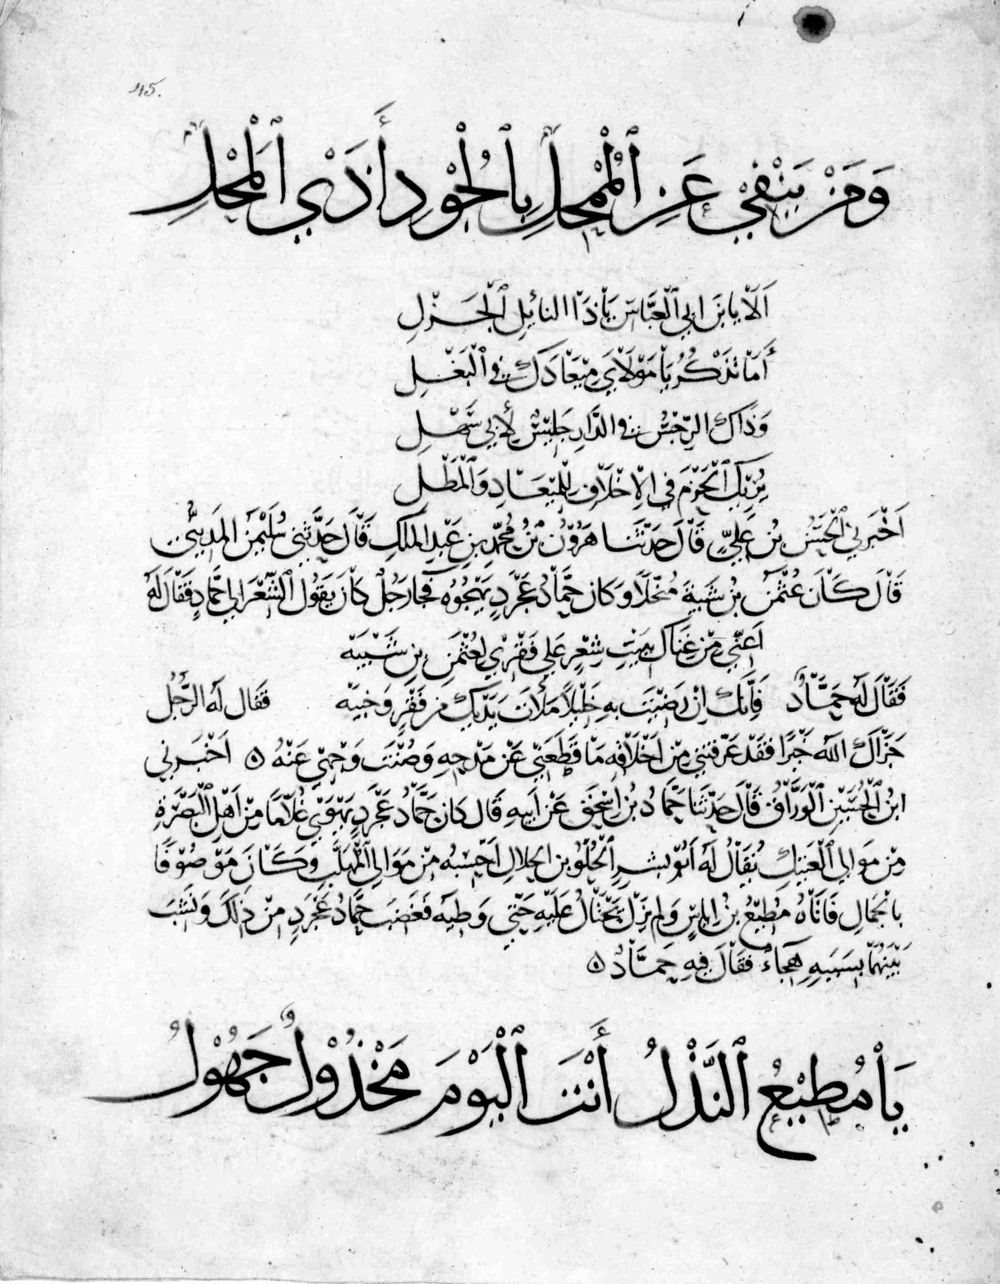 45.
وَمَنْ يَنْفِي عَنِ ٱلْمُمْحِلِ بِٱلْجُوْدِ أَذَىٰ ٱلْمَحْلِ
اَلَاْ يَابْنَ ابِي ٱلْعَبَّاسِ يَاْذَاْ النائِلِ ٱلْجَزْلِ
أَمَاْ تَذْكُرُ يَاْ مَوْلَاْيَ مِيْعَادَكَ فِي ٱلْبَغْلِ
وَذَاكَ الرِّجْسُ فِي الدَّارِ جَلِيْسٌ لِأَبِي سَهْلِ
يُرِيْكَ ٱلْحَزْمَ فِي الْاِخْلَافِ لِلْمِيْعَادِ وَٱلْمَطْلِ
اَخْبَرَنِي ٱلْحَسَنُ بْنُ عَلِيٍّ قَاْلَ حَدَّثَنَا هٰرُوْنُ بْنُ مُحَمَّدِ بْنِ عَبْدِ الْمَلِكِ قَاْلَ حَدَّثَنِي سُلَيْمٰنُ الْمَدِيْنِيُّ
قَاْلَ كَاْنَ عُثْمٰنُ بْنُ شَيْبَةَ مُبَخَّلًا وَكَانَ حَمَّاْدُ عَجْرَدٍ يَهْجُوْهُ فَجَاءَ رَجُلٌ كَاْنَ يَقُوْلُ الشِّعْرَ اِلَى حَمَّادٍ فَقَالَ لَهُ
اَعِنِّي مِنْ غِنَاكَ بِبَيْتِ شِعْرٍ عَلَى فَقْرِي لِعُثْمٰنَ بْنِ شَيْبَهْ
فَقَالَ لَهُ حَمَّاْدٌ فَاِنَّكَ اِنْ رَضِيْتَ بِهِ خَلِيْلًا مَلَأْتَ يَدَيْكَ مِنْ فَقْرٍ وَخَيْبَهْ فَقَالَ لَهُ الرَّجُلُ
جَزَاْكَ اللهُ خَيْرًا فَقَدْ عَرَّفْتَنِي مِنْ اَخْلَاْقِهِ مَا قَطَعَنِي عَنْ مَدْحِهِ وَصُنْتَ وَجْهِي عَنْهُ ۵ اَخْبَرَنِي
ابْنُ الْحُسَيْنِ ٱلْوَرَّاْقُ قَاْلَ حَدَّثَنَا حَمَّادُ بْنُ اِسْحٰقَ عَنْ اَبِيْهِ قَالَ كَانَ حَمَّادُ عَجْرَدٍ يَهْوَىٰ غُلَامًا مِنْ اَهْلِ ٱلْبَصْرَةِ
مِنْ مَوَالِي ٱلْعَتِيْكِ يُقَاْلُ لَهُ اَبُوْ بِشْرٍ الْحُلْوُ بْنُ الْحَلَالِ اَحْسِبُهُ مِنْ مَوَالِي الْمُهَلَّبِ وَكَاْنَ مَوْصُوْفًا
بِالْجَمَالِ فَاَتَاهُ مُطِيْعُ بْنُ اِيَاسٍ وَلَمْ يَزَلْ يَحْتَالُ عَلَيْهِ حَتَّىٰ وَطِيَهُ فَغَضِبَ حَمَّادُ عَجْرَدٍ مِنْ ذٰلِكَ وَنَشَبَ
بَيْنَهُمَا بِسَبَبِهِ هِجَاءٌ فَقَالَ فِيْهِ حَمَّاْدٌ ۵
يَاْ مُطِيْعُ ٱلنَّذْلُ أَنْتَ ٱلْيَوْمَ مَخْذُوْلٌ جَهُوْلُ